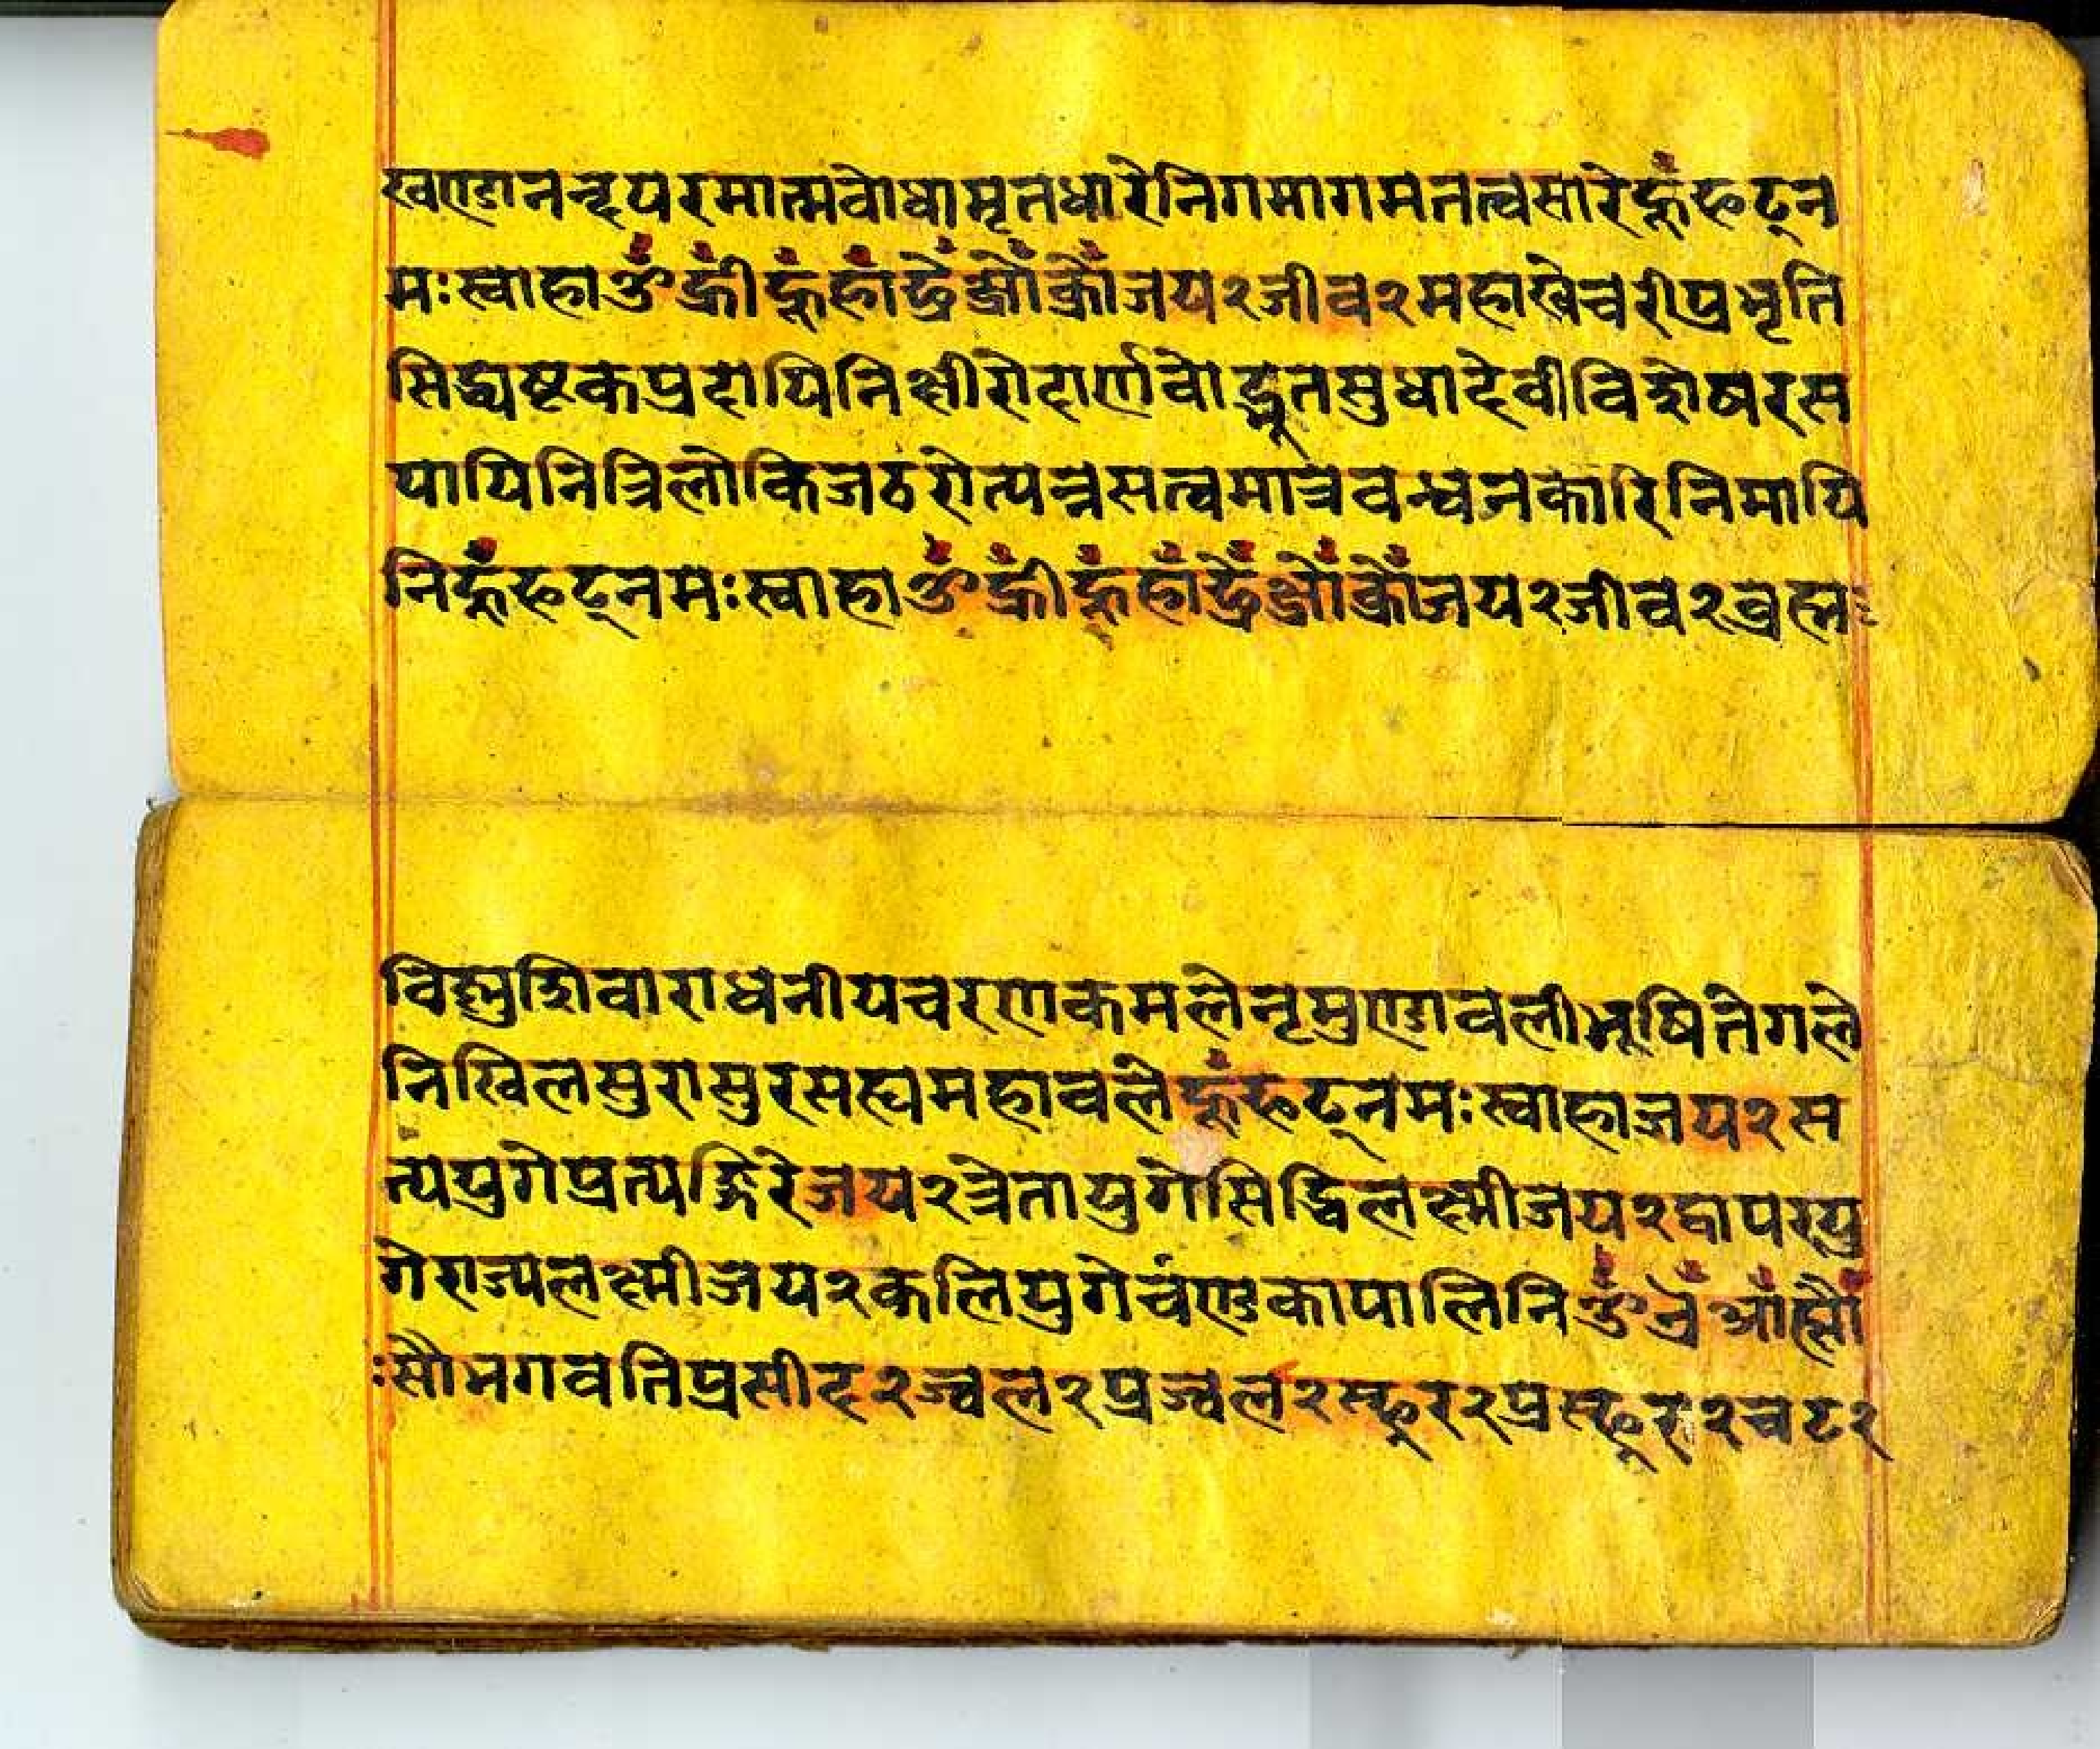 खण्डानन्दपरमात्मवोधामृतधारेनिगमागमतत्वसारेह्रूँफट्न
मःस्वाहाॐह्रीँह्रूँहाँद्रैँक्ष्रौँक्रौँजय२जीव२महाखेचरीप्रभृति
सिद्ध्यष्टकप्रदायिनिक्षीरोदार्णवोद्भूतसुधादेवीविशेषरस
पायिनित्रिलोकिजठरोत्पन्नसत्वमात्रवन्धनकारिनिमायि
निह्रूँफट्नमःस्वाहाॐह्रीँह्रूँहाँद्रैँक्ष्रौँक्रौँजय२जीव२व्रह्म
विष्णुशिवाराधनीयचरणकमलेनृमुण्डावलीभूषितेगले
निखिलसुरासुरसह्यमहावलेह्रूँफट्नमःस्वाहाजय२स
त्ययुगेप्रत्यङ्गिरेजय२त्रेतायुगेसिद्धिलक्ष्मीजय२द्वापरयु
गेराज्यलक्ष्मीजय२कलियुगेचण्डकापालिनिॐ
सौभगवतिप्रसीद२ज्वल२प्रज्वल२स्फुर२प्रस्फुर२चट२